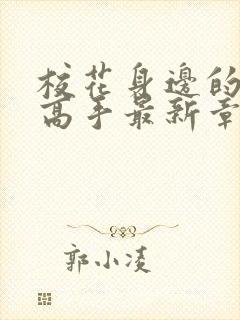 校花身邊的
高手最新章
郭小凌